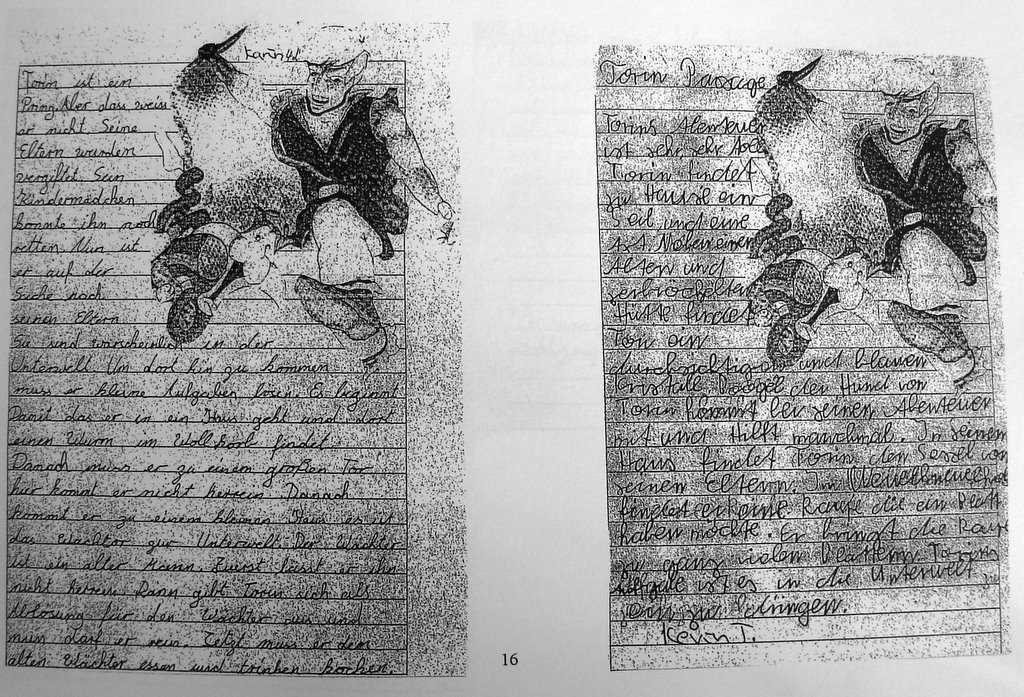 Karin 4d
Torin ist ein
Prinz Aber dass weiss
er nicht Seine
Eltern wurden
vergiftet Sein
Kindermädchen
konnte ihn noch
retten Nun ist
er auf der
Suche nach
seinen Eltern
Sie sind warscheinlich in der
Unterwelt Um dort hin zu kommen
muss er kleine Aufgaben lösen. Es beginnt
Damit das er in ein Haus geht und dort
einen Wurm im Wollkorb findet.
Danach muss er zu einem großen Tor
hier kommt er nicht herrein Danach
kommt er zu einem kleinen Haus es ist
das Wachtor zur Unterwelt Der Wächter
ist ein alter Mann Zuerst lässt er ihn
nicht herrein Dann gibt Torin sich als
Ablösung für den Wächter aus und
nun darf er rein. Jetzt muss er dem
alten Wächter essen und trinken kochen.
Torin Passage
Torins Abenteuer
ist sehr, sehr
Torin findet
zu Hause ein
Seil und eine
Axt. Neben einer
Alten und
zerbröckelten
Hütte findet
Torin ein
durchsichtigen und blauen
Kristall der Hund von
Torin kommt bei seinen Abenteuer
mit und Hilft manchmal. In seinem
Haus findet Torin den Sessel von
seinen Eltern. Im
findet er eine Raupe die ein Blatt
haben möchte. Er bringt die Raupe
zu ganz vielen Blättern Torins
Aufgabe ist es in die Unterwelt
ein zu dringen.
Kevin T.
16